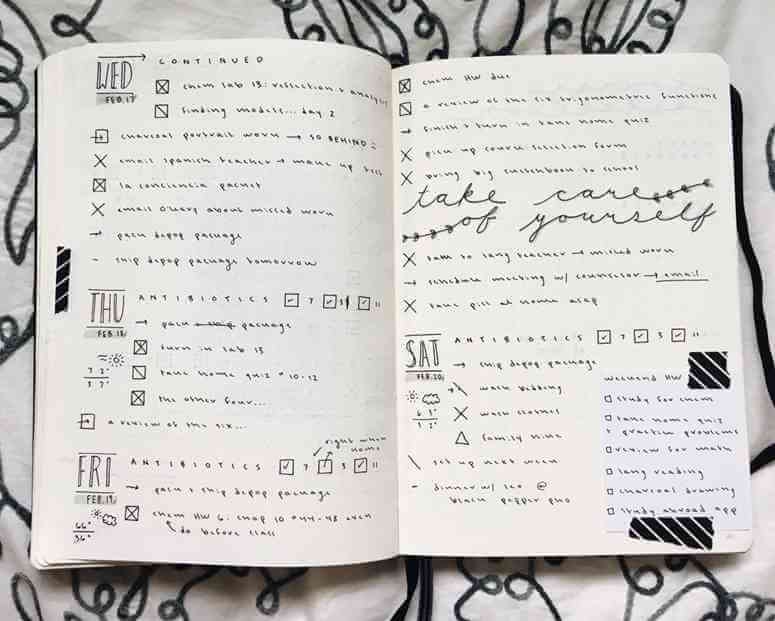 WED CONTINUED
FEB.17
chem lab 13: reflection + analysis
finding models... day 2
charcoal portrait work → SO BEHIND
email spanish teacher → make up test
la conciencia packet
email about missed work
pack depop package
- ship depop package tomorrow
THU ANTIBIOTICS 7 3 11
FEB.18
→ pack package
turn in lab 13
take home quiz 10-12
72°
37°
the other four...
a review of the six...
right when home
FRI ANTIBIOTICS 7 3 11
FEB.19
→ pack + ship depop package
chem HW 6: chap 10 #44-48 even
do before class
66°
36°
chem HW due
a review of the six trigonometric functions
→ finish + turn in take home quiz
pick up course selection form
bring big sketchbook to school
take care
of yourself
talk to lang teacher → missed work
→ schedule meeting w/ counselor → email
take pill at home asap
SAT ANTIBIOTICS 7 3 11
FEB.20
→ ship depop package
wash bedding
63°
wash clothes
family time
set up next week
- dinner w/ @
black pepper pho
weekend HW
study for chem
take home quiz
+ practice problems
review for math
lang reading
charcoal drawing
study abroad app